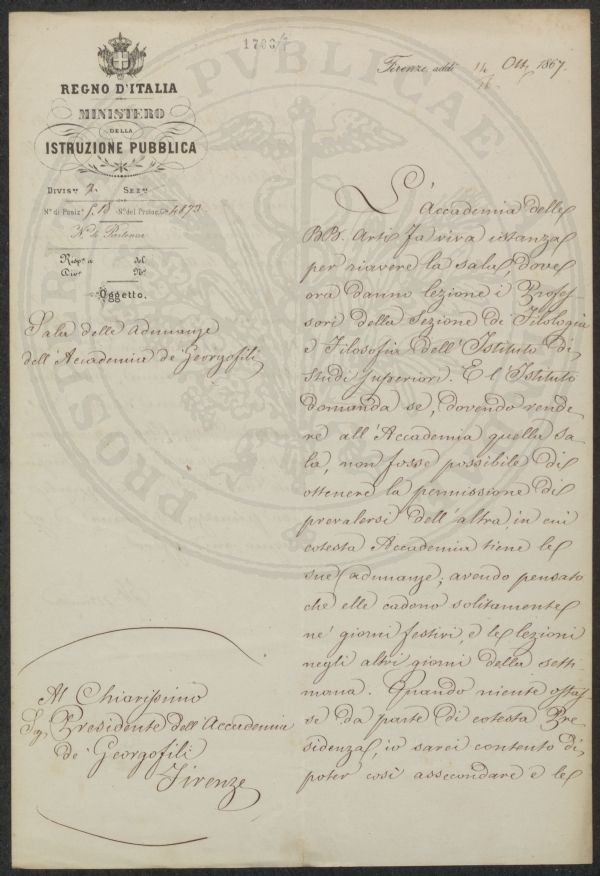 1793/7
Firenze, addì 14 Ott. 1867.
16
REGNO D'ITALIA
MINISTERO
DELLA
ISTRUZIONE PUBBLICA
DIVISe 2.a SEZe
No di Posize 5.18 No del Protoc. Gle 4873
No di Partenza
Rispta a del
Dive No
Oggetto.
Sala delle adunanze
dell'Accademia de' Georgofili
Al Chiarissimo
Sig. Presidente dell'Accademia
de' Georgofili
Firenze
L'Accademia delle
BB. Arti fa viva istanza
per riavere la sala, dove
ora danno lezione i Profes-
sori della Sezione di Filologia
e Filosofia dell'Istituto di
Studi Superiori. E l'Istituto
domanda se, dovendo rende-
re all'Accademia quella sa-
la, non fosse possibile di
ottenere la permissione di
prevalersi dell'altra, in cui
cotesta Accademia tiene le
sue adunanze; avendo pensato
che elle cadono solitamente
ne' giorni festivi, e le lezioni
negli altri giorni della setti-
mana. Quando niente ostas-
se da parte di cotesta Pre-
sidenza, io sarei contento di
poter così assecondare e le